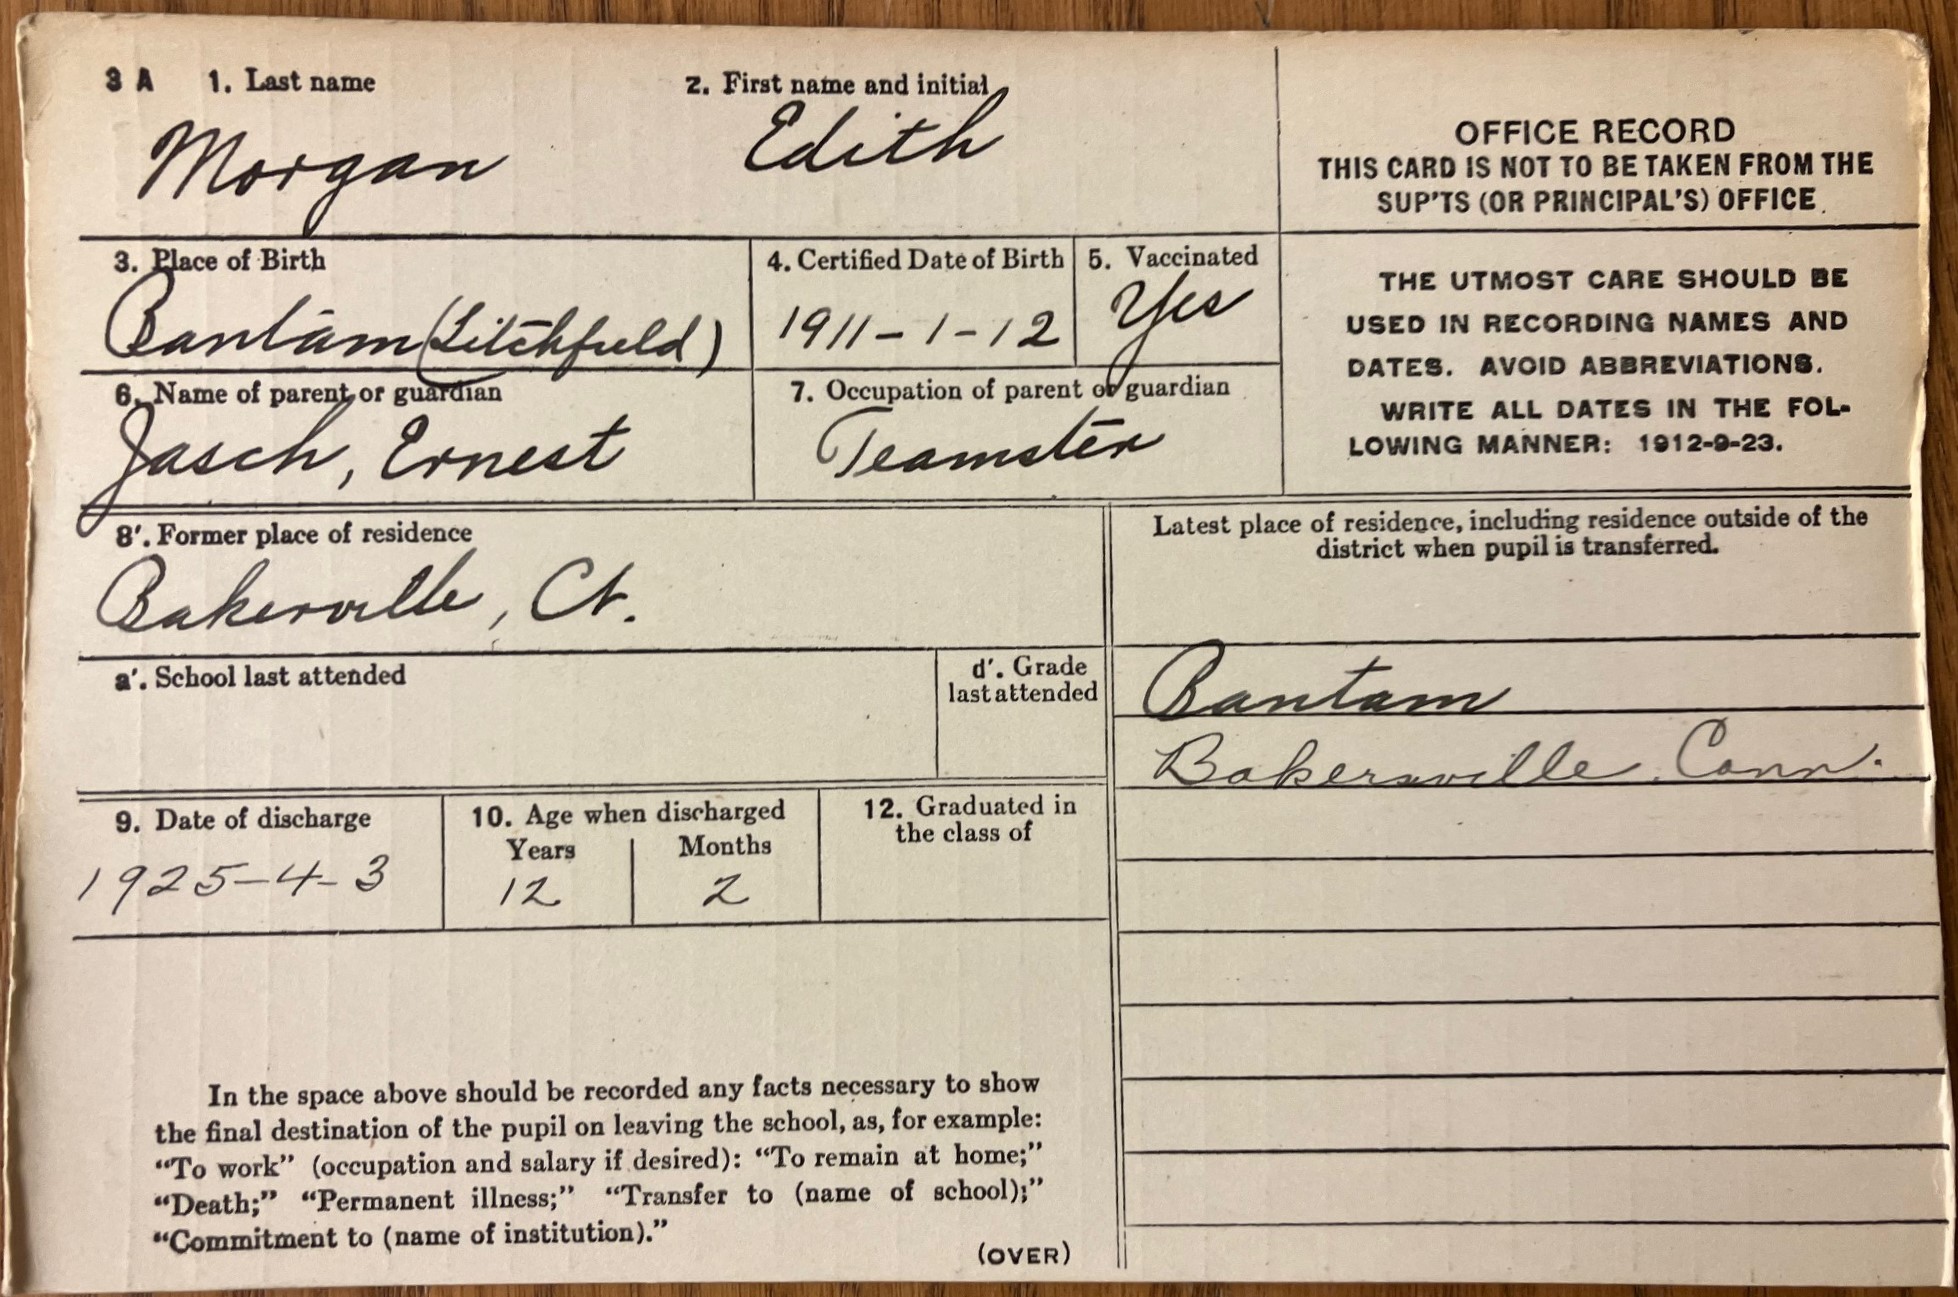 3 A 1. Last name 2. First name and initial
Morgan Edith
OFFICE RECORD
THIS CARD IS NOT TO BE TAKEN FROM THE
SUP'TS (OR PRINCIPAL'S) OFFICE.
3. Place of Birth 4. Certified Date of Birth 5. Vaccinated
Bantam (Litchfield) 1911-1-12 Yes
THE UTMOST CARE SHOULD BE
USED IN RECORDING NAMES AND
DATES. AVOID ABBREVIATIONS.
WRITE ALL DATES IN THE FOL-
LOWING MANNER: 1912-9-23.
6. Name of parent or guardian 7. Occupation of parent or guardian
Jasch, Ernest Teamster
8'. Former place of residence
Bakerville, Ct.
Latest place of residence, including residence outside of the
district when pupil is transferred.
a'. School last attended d'. Grade
last attended
Bantam
Bakersville, Conn.
9. Date of discharge 10. Age when discharged 12. Graduated in
the class of
Years Months
1925-4-3 12 2
In the space above should be recorded any facts necessary to show
the final destination of the pupil on leaving the school, as, for example:
"To work" (occupation and salary if desired): "To remain at home;"
"Death;" "Permanent illness;" "Transfer to (name of school);"
"Commitment to (name of institution)."
(OVER)